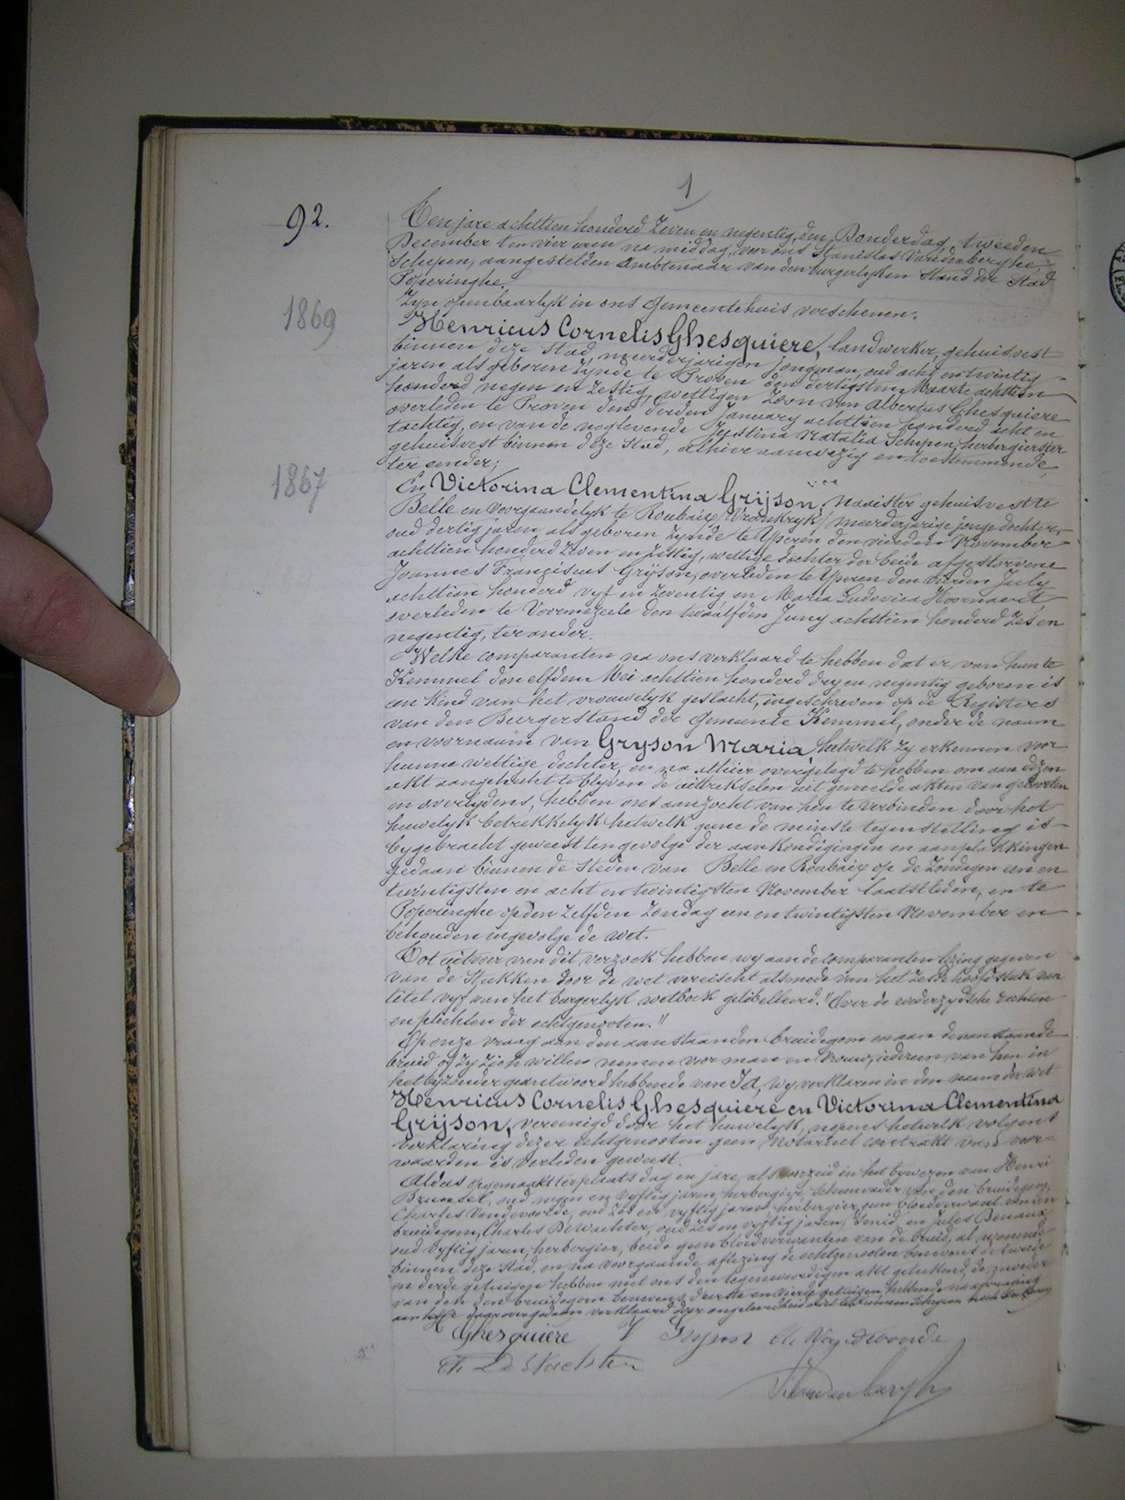 1
92.
Ten jare achttien honderd zeven en negentig, den Donderdag tweeden
December ten vier uren na middag, voor ons Stanislas Vandenberghe
Schepen, aangestelden Ambtenaar van den burgerlyken Stand der Stad
Poperinghe,
Zyn openbaarlyk in ons Gemeentehuis verschenen.
1869
Henricus Cornelis Ghesquiere, landwerker, gehuisvest
binnen deze Stad, meerderjarigen jongman, oud acht en twintig
jaren als geboren zynde te Proven den dertigsten Maarte achttien
honderd negen en zestig, wettigen zoon van Albertus Ghesquiere
overleden te Proven den derden January achttien honderd acht en
tachtig, en van de noglevende Justina Natalia Schepen, herbergierster
gehuisvest binnen deze Stad, alhier aanwezig en toestemmende
ter eender;
1867
En Victorina Clementina Gryson, Naaister gehuisvest te
Belle en voorgaandelyk te Roubaix (Vrankryk) meerderjarige jonge dochter,
oud dertig jaren, als geboren zynde te Yperen den vierden November
achttien honderd zeven en zestig, wettige dochter der beide afgestorvene
Joannes Franciscus Gryson, overleden te Yperen den July
achttien honderd vyf en zeventig en Maria Ludovica Hoornaert
overleden te Voormezeele den twaalfden Juny achttien honderd zes en
negentig, ter ander.
Welke comparanten na ons verklaard te hebben dat er van hun te
Kemmel den elfden Mei achttien honderd dry en negentig geboren is
een kind van het vrouwelyk geslacht, ingeschreven op de Registers
van den Burgerstand der gemeente Kemmel, onder de naam
en voornaam van Gryson Maria, hetwelk zy erkennen voor
hunne wettige dochter, en na alhier overgelegd te hebben om aan dezen
akt aangehecht te blyven de uittrekselen uit gemelde akten van geboorten
en overlydens, hebben ons aanzocht van hen te verbinden door het
huwelyk betrekkelyk hetwelk geene de minste tegenstelling is
bygebracht geweest ten gevolge der aankondigingen en aanplakkingen
gedaan binnen de steden van Belle en Roubaix op de zondagen een en
twintigsten en acht en twintigsten November laatstleden, en te
Poperinghe op den zelfden zondag een en twintigsten November en
behouden ingevolge de wet.
Tot uitvoer van dit verzoek hebben wy aan de comparanten lezing gegeven
van de Stukken door de wet vereischt alsmede van het zesde hoofdstuk van
titel vyf van het burgerlyk wetboek gelibelleerd: "Over de wederzydsche rechten
en plichten der echtgenooten."
Op onze vraag aan den aanstaanden bruidegom en aan de aanstaande
bruid, of zy zich willen nemen voor man en vrouw, iedereen van hen in
het byzonder geantwoord hebbende van Ja, wy verklaren in den naam der wet
Henricus Cornelis Ghesquiere en Victorina Clementina
Gryson, vereenigd door het huwelyk, nopens hetwelk volgens
verklaring dezer echtgenooten geen Notarieel contrakt van voor-
waarden is verleden geweest.
Aldus opgemaakt ter plaats dag en jare, als gezeid in het bywezen van Henri
Brunel, oud negen en vyftig jaren, herbergier, van den bruidegom,
Charles Vandevoorde, oud zes en vyftig jaren, herbergier, geen bloedverwant van den
bruidegom, Charles Dewachter, oud zes en vyftig jaren, en Jules
oud vyftig jaren, herbergier, beide geen bloedverwanten van de bruid, al wonende
binnen deze stad, en na voorgaande aflezing de echtgenooten benevens de tweede
en derde getuigen hebben met ons den tegenwoordigen akt geteekend, de moeder
van den bruidegom benevens de eerste en vierde getuigen, hebbende na aflezing
verklaard
Ghesquiere V Gryson Ch. Vandevoorde
Ch. De Wachter
S. Vandenberghe